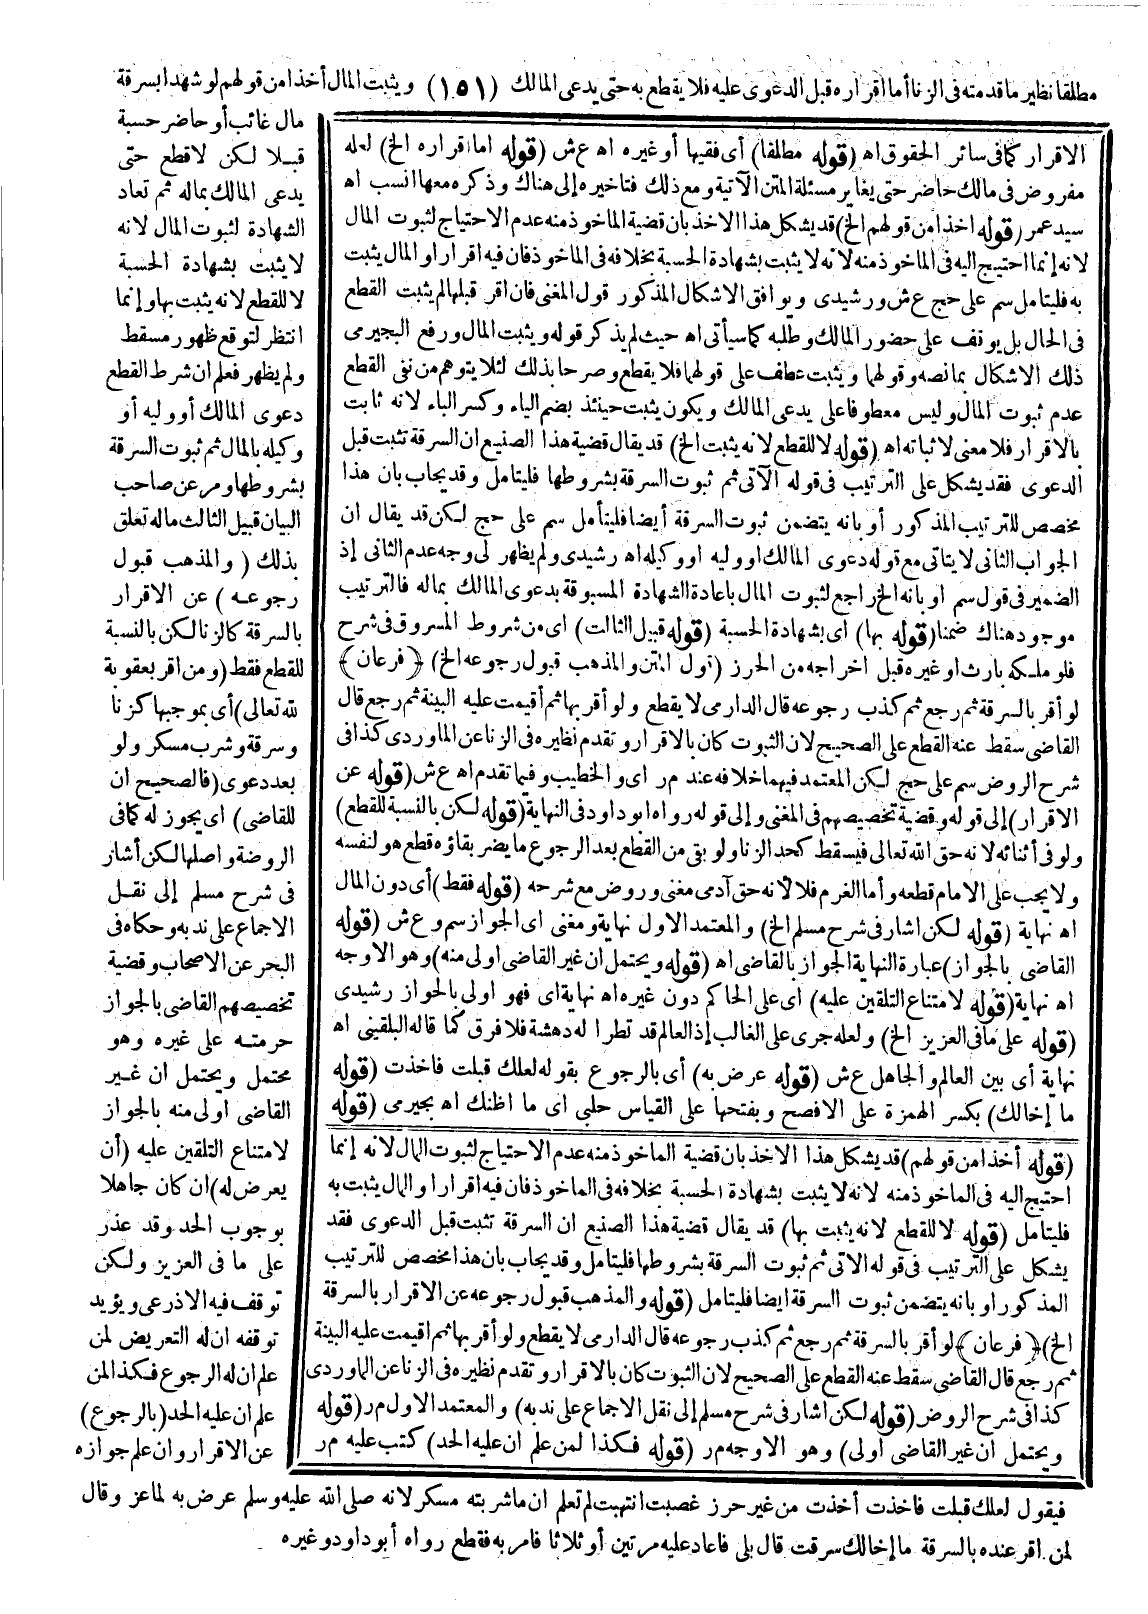 مطلقا نظير ما قدمته فى الزنا أما اقراره قبل الدعوى عليه فلا يقطع به حتى يدعى المالك (١٥١) ويثبت المال أخذا من قولهم لو شهدا بسرقة
مال غائب أو حاضر حسبة
قبلا لكن لا قطع حتى
يدعى المالك بماله ثم تعاد
الشهادة لثبوت المال لانه
لا يثبت بشهادة الحسبة
لا للقطع لانه يثبت بها وإنما
انتظر لتوقع ظهور مسقط
ولم يظهر فعلم ان شرط القطع
دعوى المالك أو وليه أو
وكيله بالمال ثم ثبوت السرقة
بشروطها ومر عن صاحب
البيان قبيل الثالث ماله تعلق
بذلك (والمذهب قبول
رجوعه) عن الاقرار
بالسرقة كالزنا لكن بالنسبة
للقطع فقط (ومن اقر بعقوبة
لله تعالى) أى بموجبها كزنا
وسرقة وشرب مسكر ولو
بعد دعوى (فالصحيح ان
للقاضى) اى يجوز له كما فى
الروضة واصلها لكن أشار
فى شرح مسلم إلى نقل
الاجماع على ندبه وحكاه فى
البحر عن الاصحاب وقضية
تخصيصهم القاضى بالجواز
حرمته على غيره وهو
محتمل ويحتمل ان غير
القاضى اولى منه بالجواز
لامتناع التلقين عليه (أن
يعرض له) ان كان جاهلا
بوجوب الحد وقد عذر
على ما فى العزيز ولكن
توقف فيه الاذرعى ويؤيد
توقفه ان له التعريض لمن
علم ان له الرجوع فكذا لمن
علم ان عليه الحد (بالرجوع)
عن الاقرار وان علم جوازه
فيقول لعلك قبلت فاخذت أخذت من غير حرز غصبت انتهبت لم تعلم ان ما شربته مسكر لانه صلى الله عليه وسلم عرض به لماعز وقال
لمن اقر عنده بالسرقة ما إخالك سرقت قال بلى فاعاد عليه مرتين أو ثلاثا فامر به فقطع رواه أبو داود وغيره
الاقرار كما فى سائر الحقوق اه (قوله مطلقا) أى فقيها أو غيره اه ع ش (قوله اما اقراره الخ) لعله
مفروض فى مالك حاضر حتى يغاير مسئلة المتن الآتية ومع ذلك فتاخيره إلى هناك وذكره معها انسب اه
سيد عمر (قوله اخذا من قولهم الخ) قد يشكل هذا الاخذ بان قضية الماخوذ منه عدم الاحتياج لثبوت المال
لانه إنما احتيج اليه فى الماخوذ منه لانه لا يثبت بشهادة الحسبة بخلافه فى الماخوذ فان فيه اقرارا والمال يثبت
به فليتامل سم على حج ع ش ورشيدى ويوافق الاشكال المذكور قول المغنى فان اقر قبلها لم يثبت القطع
فى الحال بل يوقف على حضور المالك وطلبه كما سيأتى اه حيث لم يذكر قوله ويثبت المال ورفع البجيرمى
ذلك الاشكال بما نصه وقولهما ويثبت عطف على قولهما فلا يقطع وصرحا بذلك لئلا يتوهم من نفى القطع
عدم ثبوت المال وليس معطوفا على يدعى المالك ويكون يثبت حينئذ بضم الياء وكسر الباء لانه ثابت
بالاقرار فلا معنى لاثباته اه (قوله لا للقطع لانه يثبت الخ) قد يقال قضية هذا الصنيع ان السرقة تثبت قبل
الدعوى فقد يشكل على الترتيب فى قوله الآتى ثم ثبوت السرقة بشروطها فليتامل وقد يجاب بان هذا
مخصص للترتيب المذكور أو بانه يتضمن ثبوت السرقة أيضا فليتأمل سم على حج لكن قد يقال ان
الجواب الثانى لا يتاتى مع قوله دعوى المالك او وليه او وكيله اه رشيدى ولم يظهر لى وجه عدم الثانى إذ
الضمير فى قول سم او بانه الخ راجع لثبوت المال باعادة الشهادة المسبوقة بدعوى المالك بماله فالترتيب
موجود هناك ضمنا (قوله بها) أى بشهادة الحسبة (قوله قبيل الثالث) اى من شروط المسروق فى شرح
فلو ملكه بارث او غيره قبل اخراجه من الحرز (قول المتن والمذهب قبول رجوعه الخ) ﴿فرعان﴾
لو أقر بالسرقة ثم رجع ثم كذب رجوعه قال الدارمى لا يقطع ولو أقر بها ثم أقيمت عليه البينة ثم رجع قال
القاضى سقط عنه القطع على الصحيح لان الثبوت كان بالاقرار وتقدم نظيره فى الزنا عن الماوردى كذا فى
شرح الروض سم على حج لكن المعتمد فيهما خلافه عند م ر اى والخطيب وفيما تقدم اه ع ش (قوله عن
الاقرار) إلى قوله وقضية تخصيصهم فى المغنى وإلى قوله رواه ابو داود فى النهاية (قوله لكن بالنسبة للقطع)
ولو فى أثنائه لانه حق الله تعالى فيسقط كحد الزنا ولو بقى من القطع بعد الرجوع ما يضر بقاؤه قطع هو لنفسه
ولا يجب على الامام قطعه وأما الغرم فلا لانه حق آدمى مغنى وروض مع شرحه (قوله فقط) أى دون المال
اه نهاية (قوله لكن اشار فى شرح مسلم الخ) والمعتمد الاول نهاية ومغنى اى الجواز سم وع ش (قوله
القاضى بالجواز) عبارة النهاية الجواز بالقاضى اه (قوله ويحتمل ان غير القاضى اولى منه) وهو الاوجه
اه نهاية (قوله لامتناع التلقين عليه) اى على الحاكم دون غيره اه نهاية اى فهو اولى بالجواز رشيدى
(قوله على ما فى العزيز الخ) ولعله جرى على الغالب إذ العالم قد تطرا له دهشة فلا فرق كما قاله البلقينى اه
نهاية أى بين العالم والجاهل ع ش (قوله عرض به) أى بالرجوع بقوله لعلك قبلت فاخذت (قوله
ما إخالك) بكسر الهمزة على الافصح وبفتحها على القياس حلبى اى ما اظنك اه بجيرمى (قوله
(قوله أخذا من قولهم) قد يشكل هذا الاخذ بان قضية الماخوذ منه عدم الاحتياج لثبوت المال لانه إنما
احتيج اليه فى الماخوذ منه لانه لا يثبت بشهادة الحسبة بخلافه فى الماخوذ فان فيه اقرارا والمال يثبت به
فليتامل (قوله لا للقطع لانه يثبت بها) قد يقال قضية هذا الصنيع ان السرقة تثبت قبل الدعوى فقد
يشكل على الترتيب فى قوله الاتى ثم ثبوت السرقة بشروطها فليتامل وقد يجاب بان هذا مخصص للترتيب
المذكور او بانه يتضمن ثبوت السرقة ايضا فليتامل (قوله والمذهب قبول رجوعه عن الاقرار بالسرقة
الخ) ﴿فرعان﴾ لو أقر بالسرقة ثم رجع ثم كذب رجوعه قال الدارمى لا يقطع ولو أقر بها ثم اقيمت عليه البينة
ثم رجع قال القاضى سقط عنه القطع على الصحيح لان الثبوت كان بالاقرار وتقدم نظيره فى الزنا عن الماوردى
كذا فى شرح الروض (قوله لكن اشار فى شرح مسلم إلى نقل الاجماع على ندبه) والمعتمد الاول م ر (قوله
ويحتمل ان غير القاضى اولى) وهو الاوجه م ر (قوله فكذا لمن علم ان عليه الحد) كتب عليه م ر